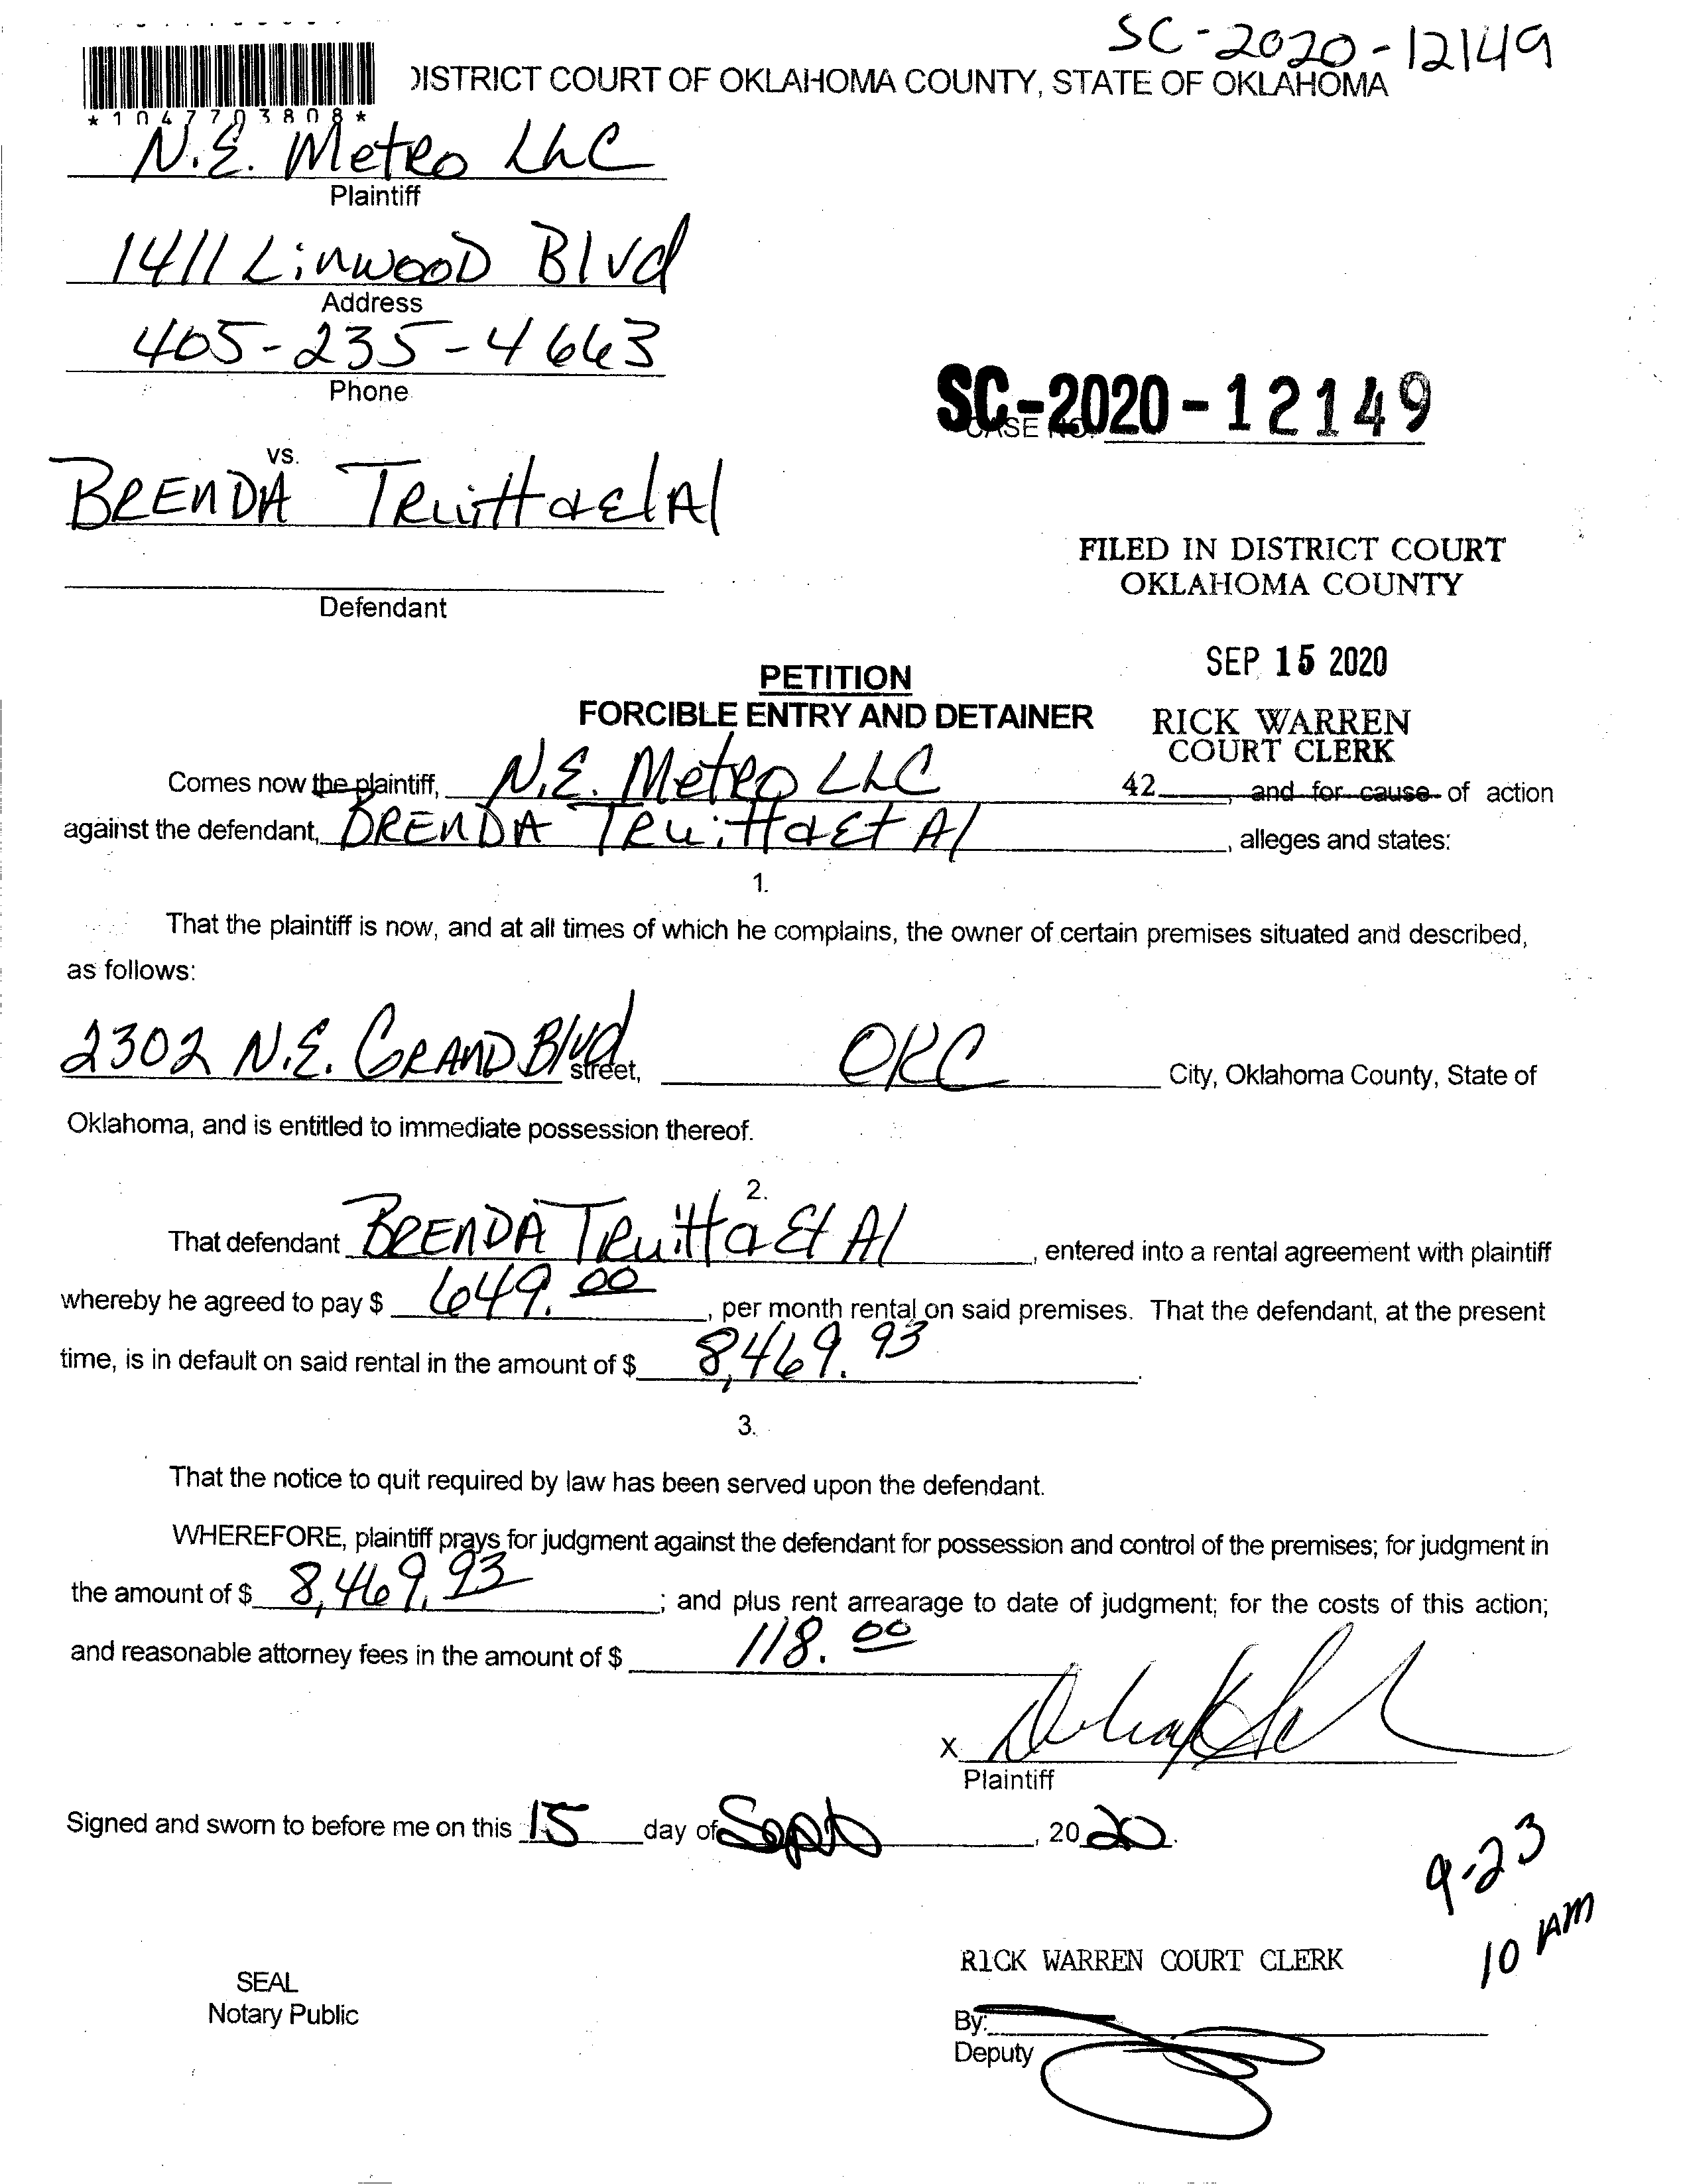 SC-2020-12149
DISTRICT COURT OF OKLAHOMA COUNTY, STATE OF OKLAHOMA
*1047703808*
N.E. Metro LLC
Plaintiff
1411 Linwood Blvd
Address
405-235-4663
Phone
SC-2020-12149
CASE NO.
vs.
BRENDA Truitt a et Al
Defendant
FILED IN DISTRICT COURT
OKLAHOMA COUNTY
SEP 15 2020
RICK WARREN
COURT CLERK
42
PETITION
FORCIBLE ENTRY AND DETAINER
Comes now the plaintiff, N.E. Metro LLC, and for cause of action
against the defendant, BRENDA Truitt a Et Al, alleges and states:
1.
That the plaintiff is now, and at all times of which he complains, the owner of certain premises situated and described,
as follows:
2302 N.E. GRAND Blvd street, OKC City, Oklahoma County, State of
Oklahoma, and is entitled to immediate possession thereof.
2.
That defendant BRENDA Truitt a Et Al, entered into a rental agreement with plaintiff
whereby he agreed to pay $ 649.00, per month rental on said premises. That the defendant, at the present
time, is in default on said rental in the amount of $ 8,469.93.
3.
That the notice to quit required by law has been served upon the defendant.
WHEREFORE, plaintiff prays for judgment against the defendant for possession and control of the premises; for judgment in
the amount of $ 8,469.93; and plus rent arrearage to date of judgment; for the costs of this action;
and reasonable attorney fees in the amount of $ 118.00
X
Plaintiff
Signed and sworn to before me on this 15 day of Sept, 2020.
9-23
10 AM
RICK WARREN COURT CLERK
SEAL
Notary Public
By:
Deputy